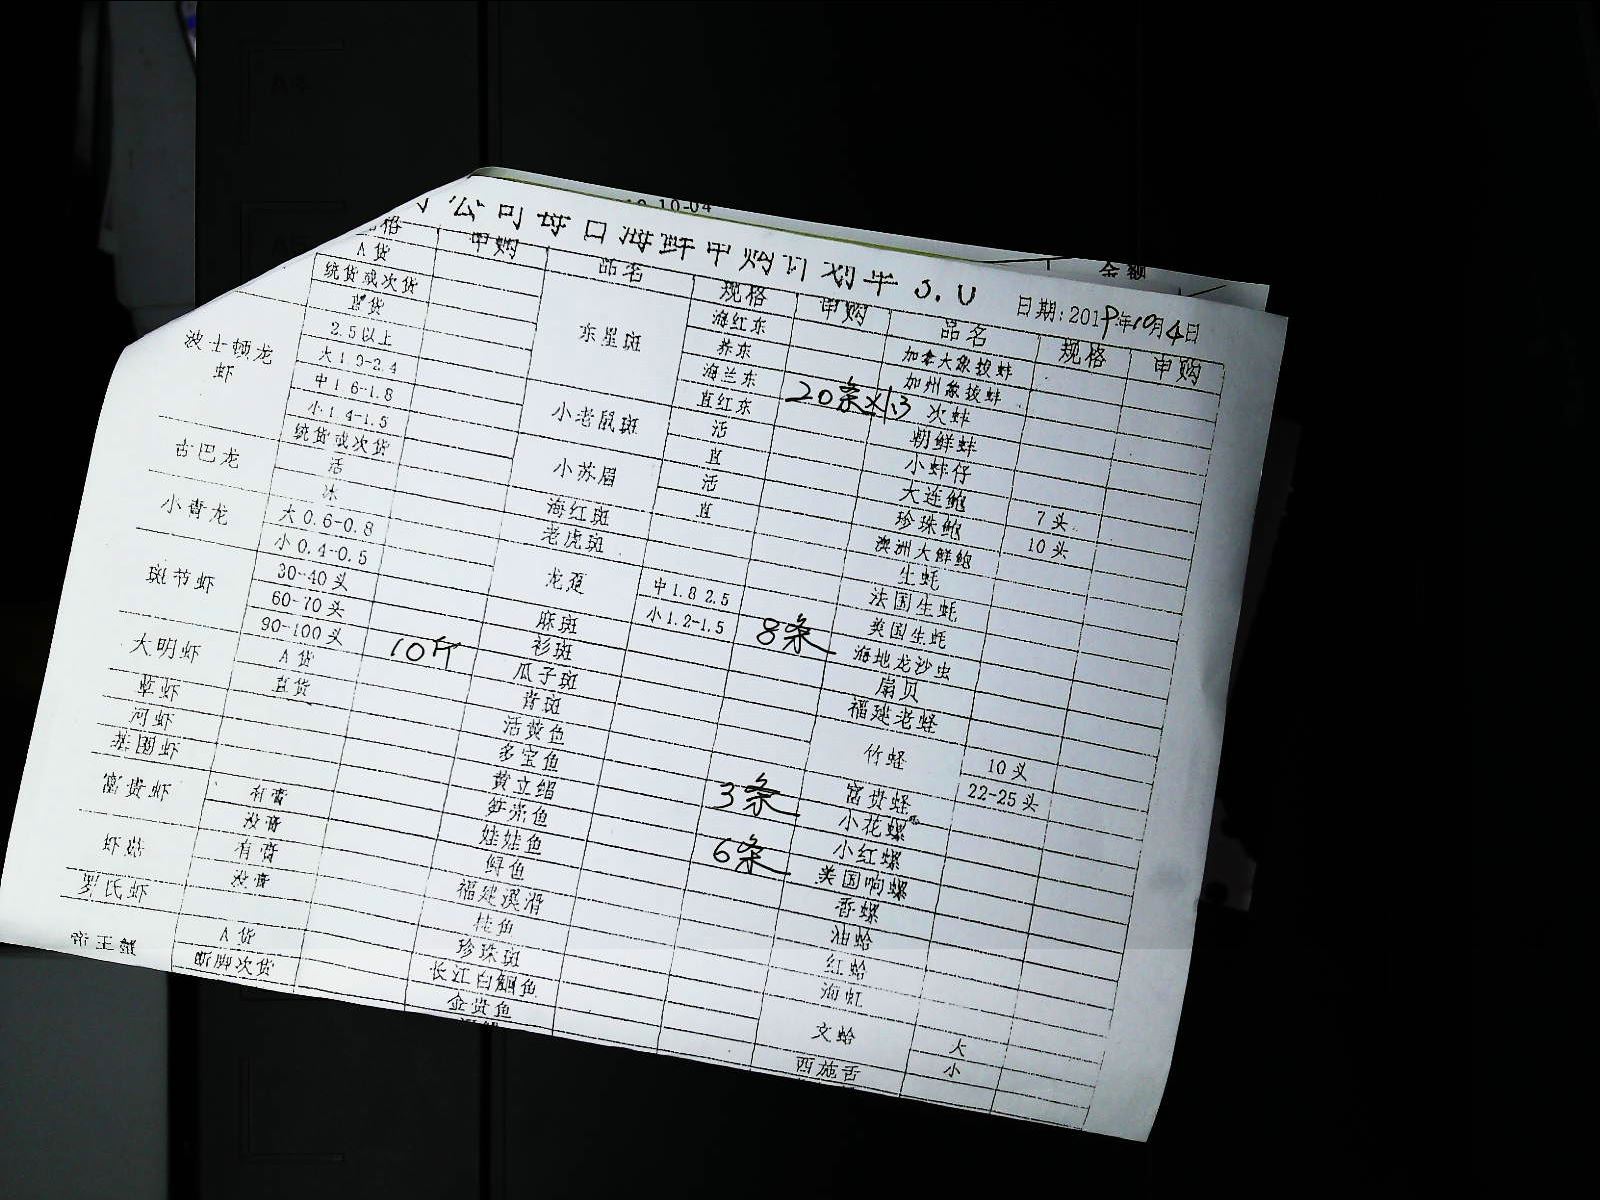 10-04
金额
公司每日海鲜申购计划单 3.0
日期: 2019年10月4日
规格 申购 品名 规格 申购 品名 规格 申购
A 货
统货或次货
直货
波士顿龙虾
2.5以上
大1.9-2.4
中1.6-1.8
小1.4-1.5
统货或次货
古巴龙
活
冰
小青龙
大0.6-0.8
小0.4-0.5
斑节虾
30-40头
60-70头
90-100头 10斤
大明虾
A 货
直货
河虾
基围虾
富贵虾
有膏
没膏
虾菇
有膏
没膏
罗氏虾
帝王蟹
A 货
断脚次货
东星斑
海红东
养东
海兰东
直红东 20条×1.3
小老鼠斑
活
直
小苏眉
活
直
海红斑
老虎斑
龙趸
中1.8 2.5
小1.2-1.5 8条
麻斑
衫斑
瓜子斑
青斑
活黄鱼
多宝鱼
黄立鲳 3条
笋壳鱼
娃娃鱼 6条
鲟鱼
福建溪滑
桂鱼
珍珠斑
长江白鮰鱼
金贵鱼
加拿大象拔蚌
加州象拔蚌
次蚌
朝鲜蚌
小蚌仔
大连鲍
珍珠鲍 7头
澳洲大鲜鲍 10头
生蚝
法国生蚝
美国生蚝
海地龙沙虫
扇贝
福建老蛏
竹蛏
10头
22-25头
富贵蛏
小花螺
小红螺
美国响螺
香螺
油蛤
红蛤
海虹
文蛤
大
小
西施舌